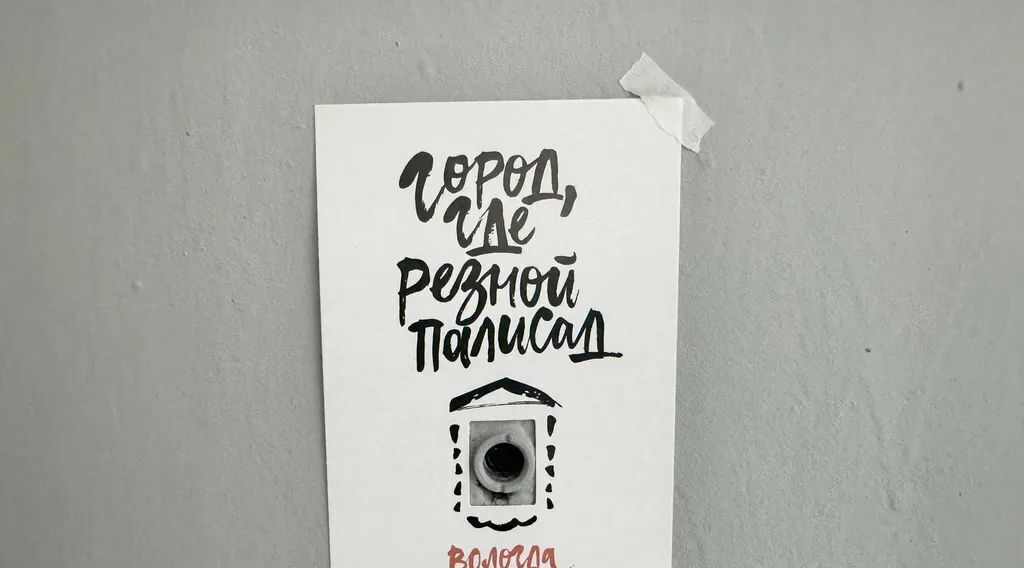 город,
где
резной
палисад
вологда